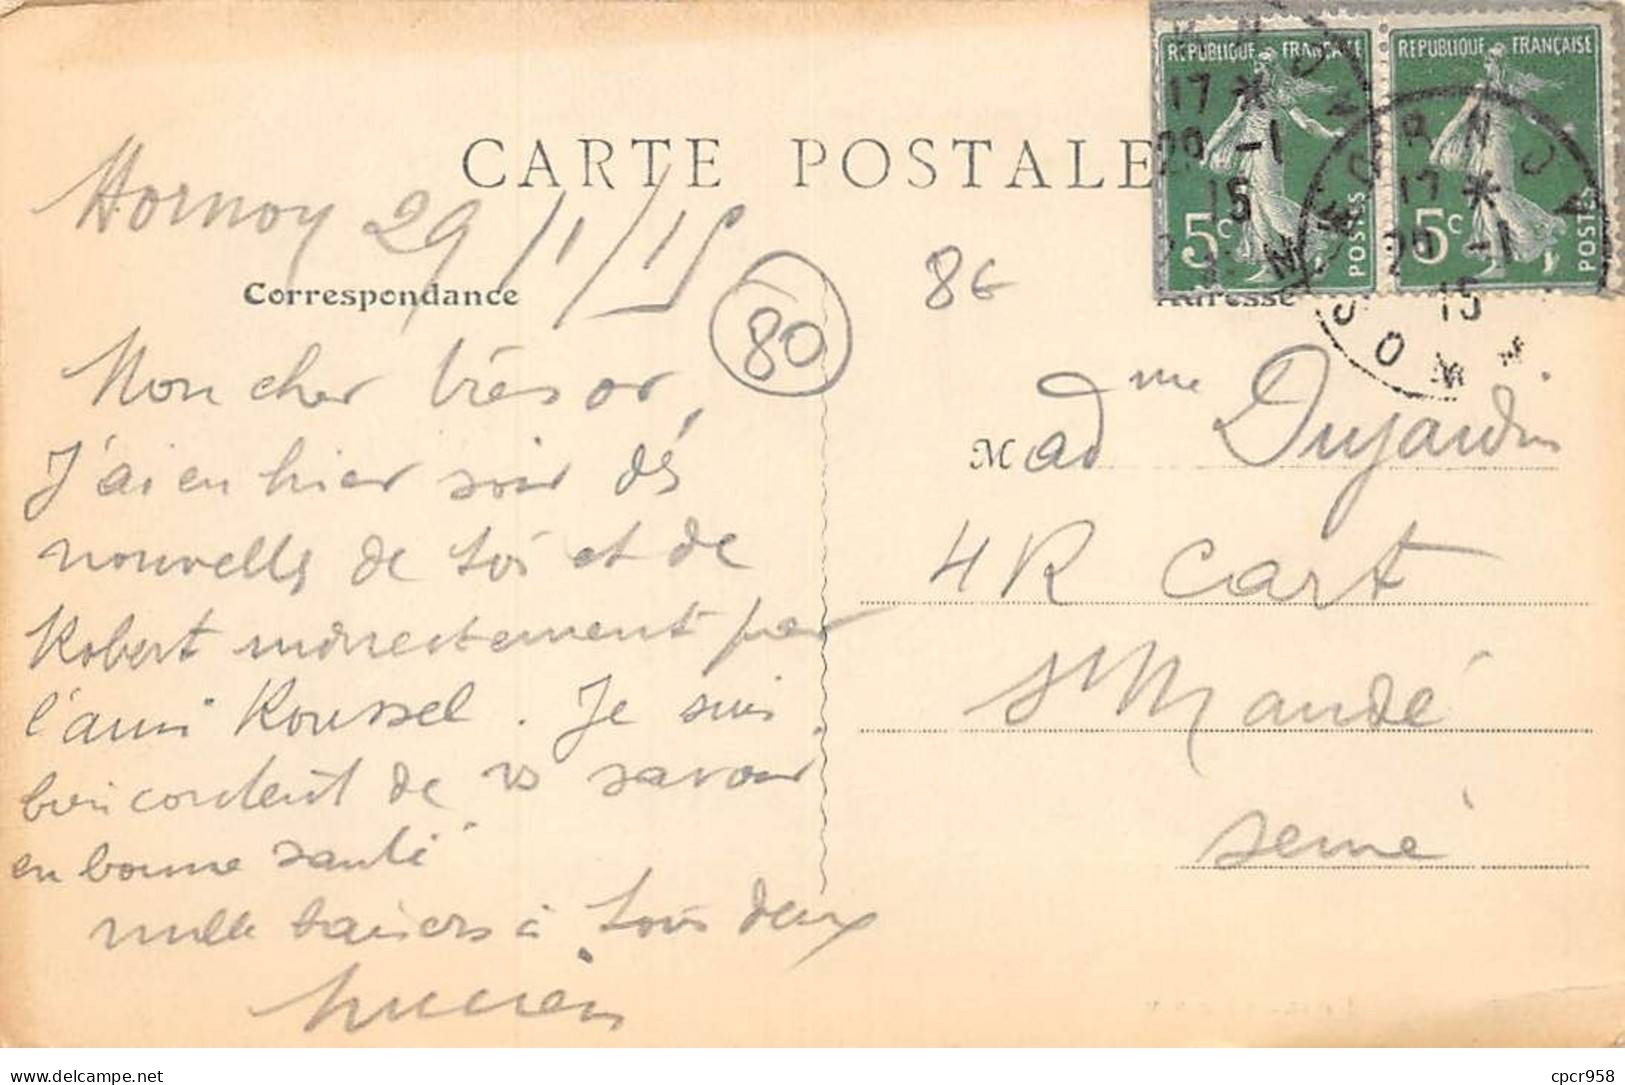 CARTE POSTALE
REPUBLIQUE FRANÇAISE
5c POSTES
REPUBLIQUE FRANÇAISE
5c POSTES
17 *
29 -1
15
HORNOY
17 *
29 -1
15
SOMME
Hornoy 29/1/15
Correspondance
80
8€
Adresse
Mon cher trésor,
J'ai eu hier soir dés
nouvelles de toi et de
Robert indirectement par
l'ami Roussel. Je suis
bien content de vs savoir
en bonne santé
mille baisers à tous deux
Lucien
Madme Dujardin
4 R Cart
St Mandé
Seine
delcampe.net
cpcr958